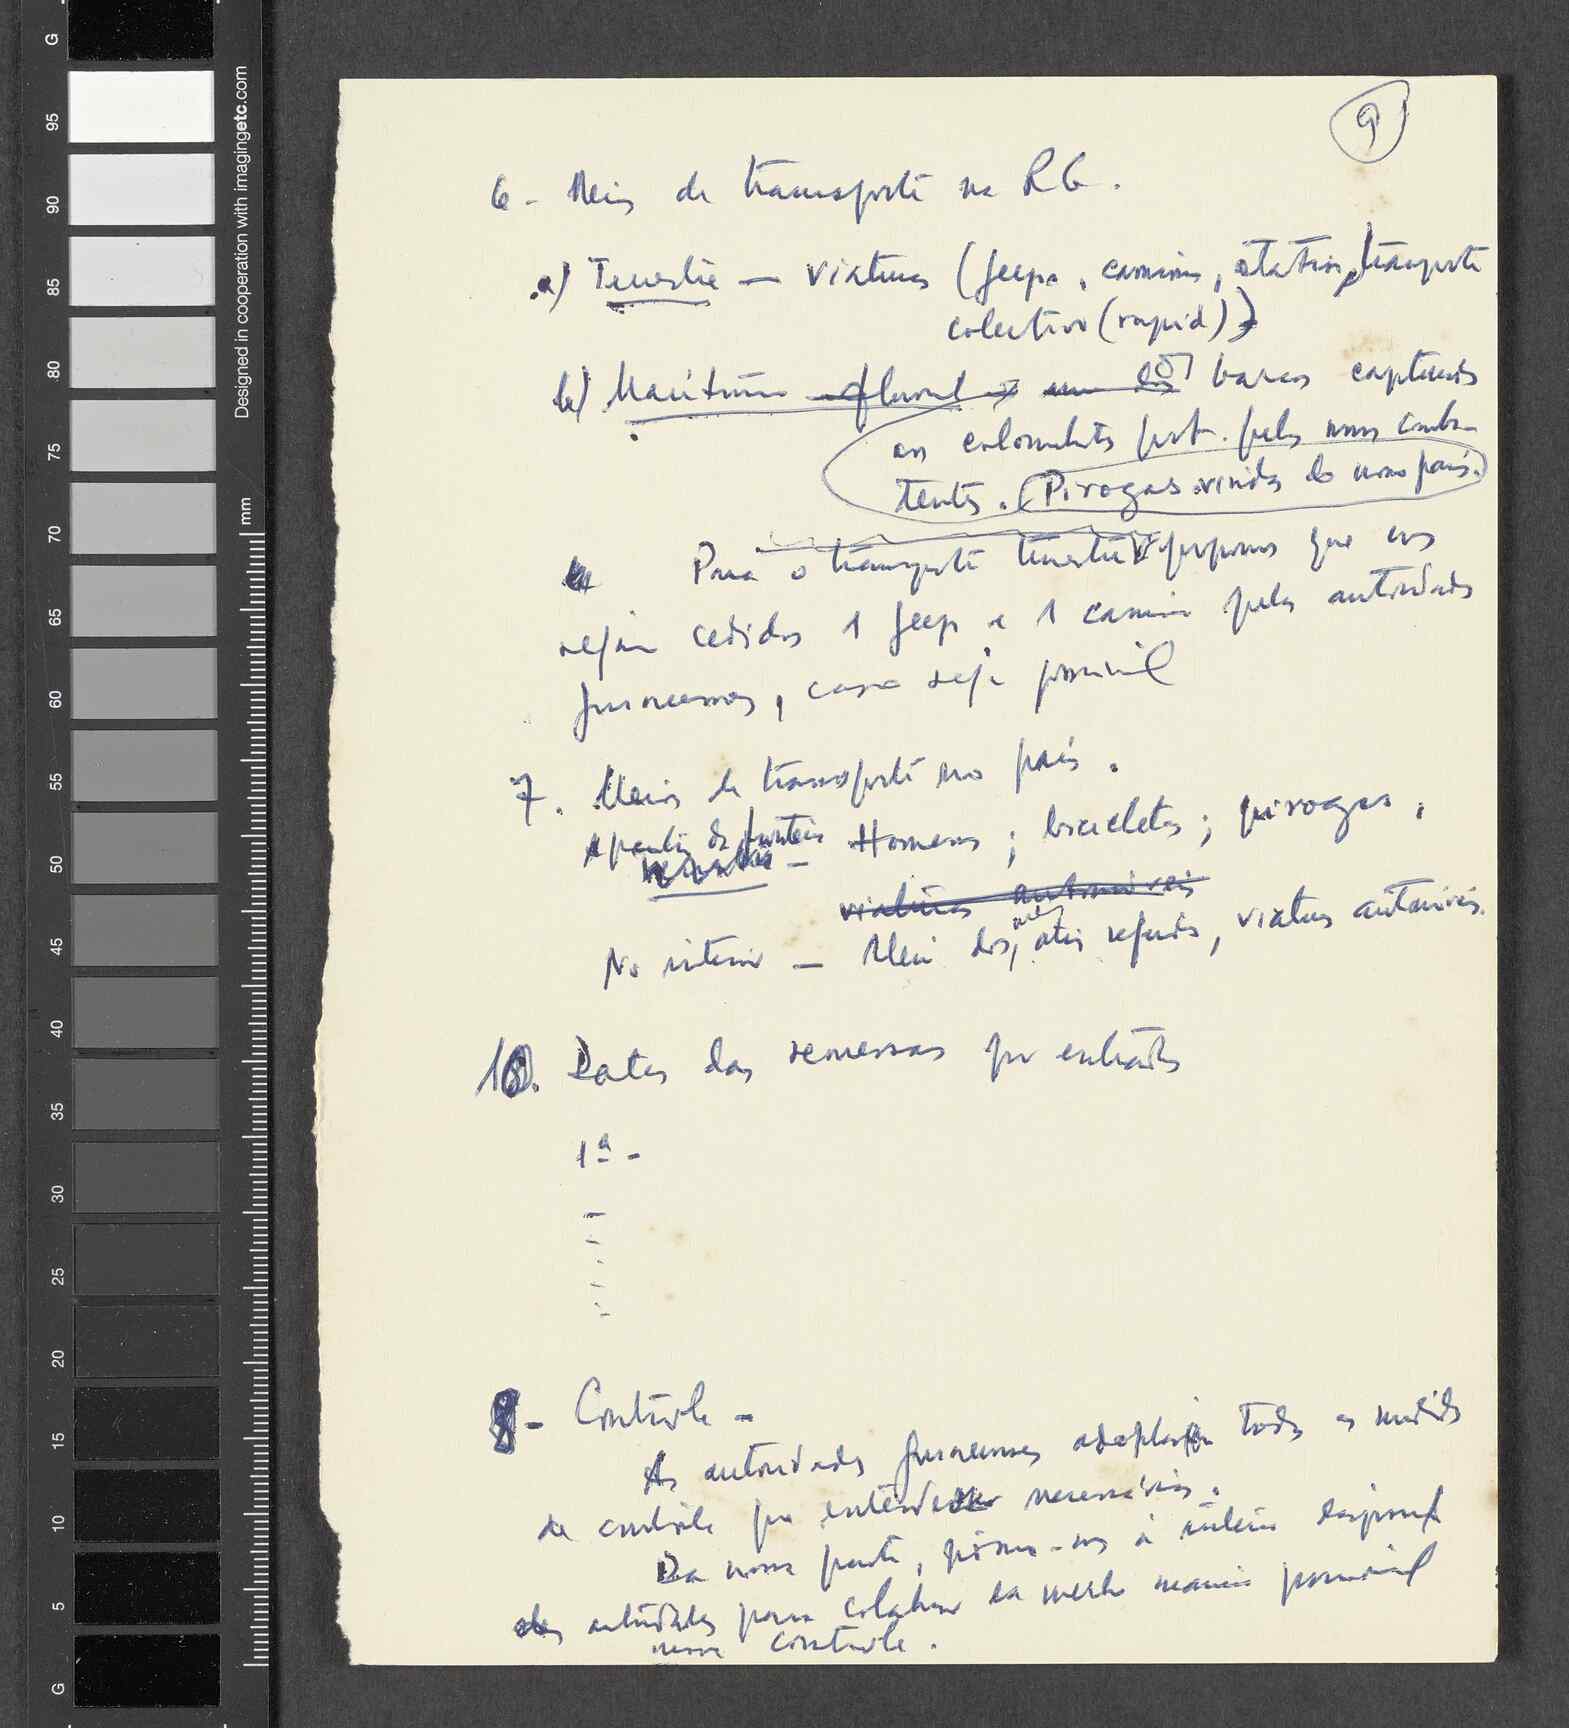 9
6 - Meios de transporte na R G.
a) Terrestre — viaturas (jeeps, camions, station, transporte
colectivo (rapid))
b) Marítimo fluvial — os barcos capturados
aos colonialistas port. pelos nossos comba-
tentes. (Pirogas vindas do nosso país.
Para o transporte terrestre propomos que nos
sejam cedidos 1 jeep e 1 camion pelas autoridades
guineenses, caso seja possível
7. Meios de transporte no país.
A partir da fronteira — Homens; bicicletas; pirogas,
viaturas automóveis
No interior — Além dos meios atrás referidos, viaturas automóveis.
10. Datas das remessas por entradas
1ª -
8 - Contrôle -
As autoridades guineenses adoptarão todas as medidas
de contrôle que entender necessárias.
Da nossa parte, pômo-nos à inteira disposição
das autoridades para colaborar da melhor maneira possível
nesse contrôle.
G
95
90
85
80
75
70
65
60
55
50
45
40
35
30
25
20
15
10
5
G
Designed in cooperation with imagingetc.com
mm